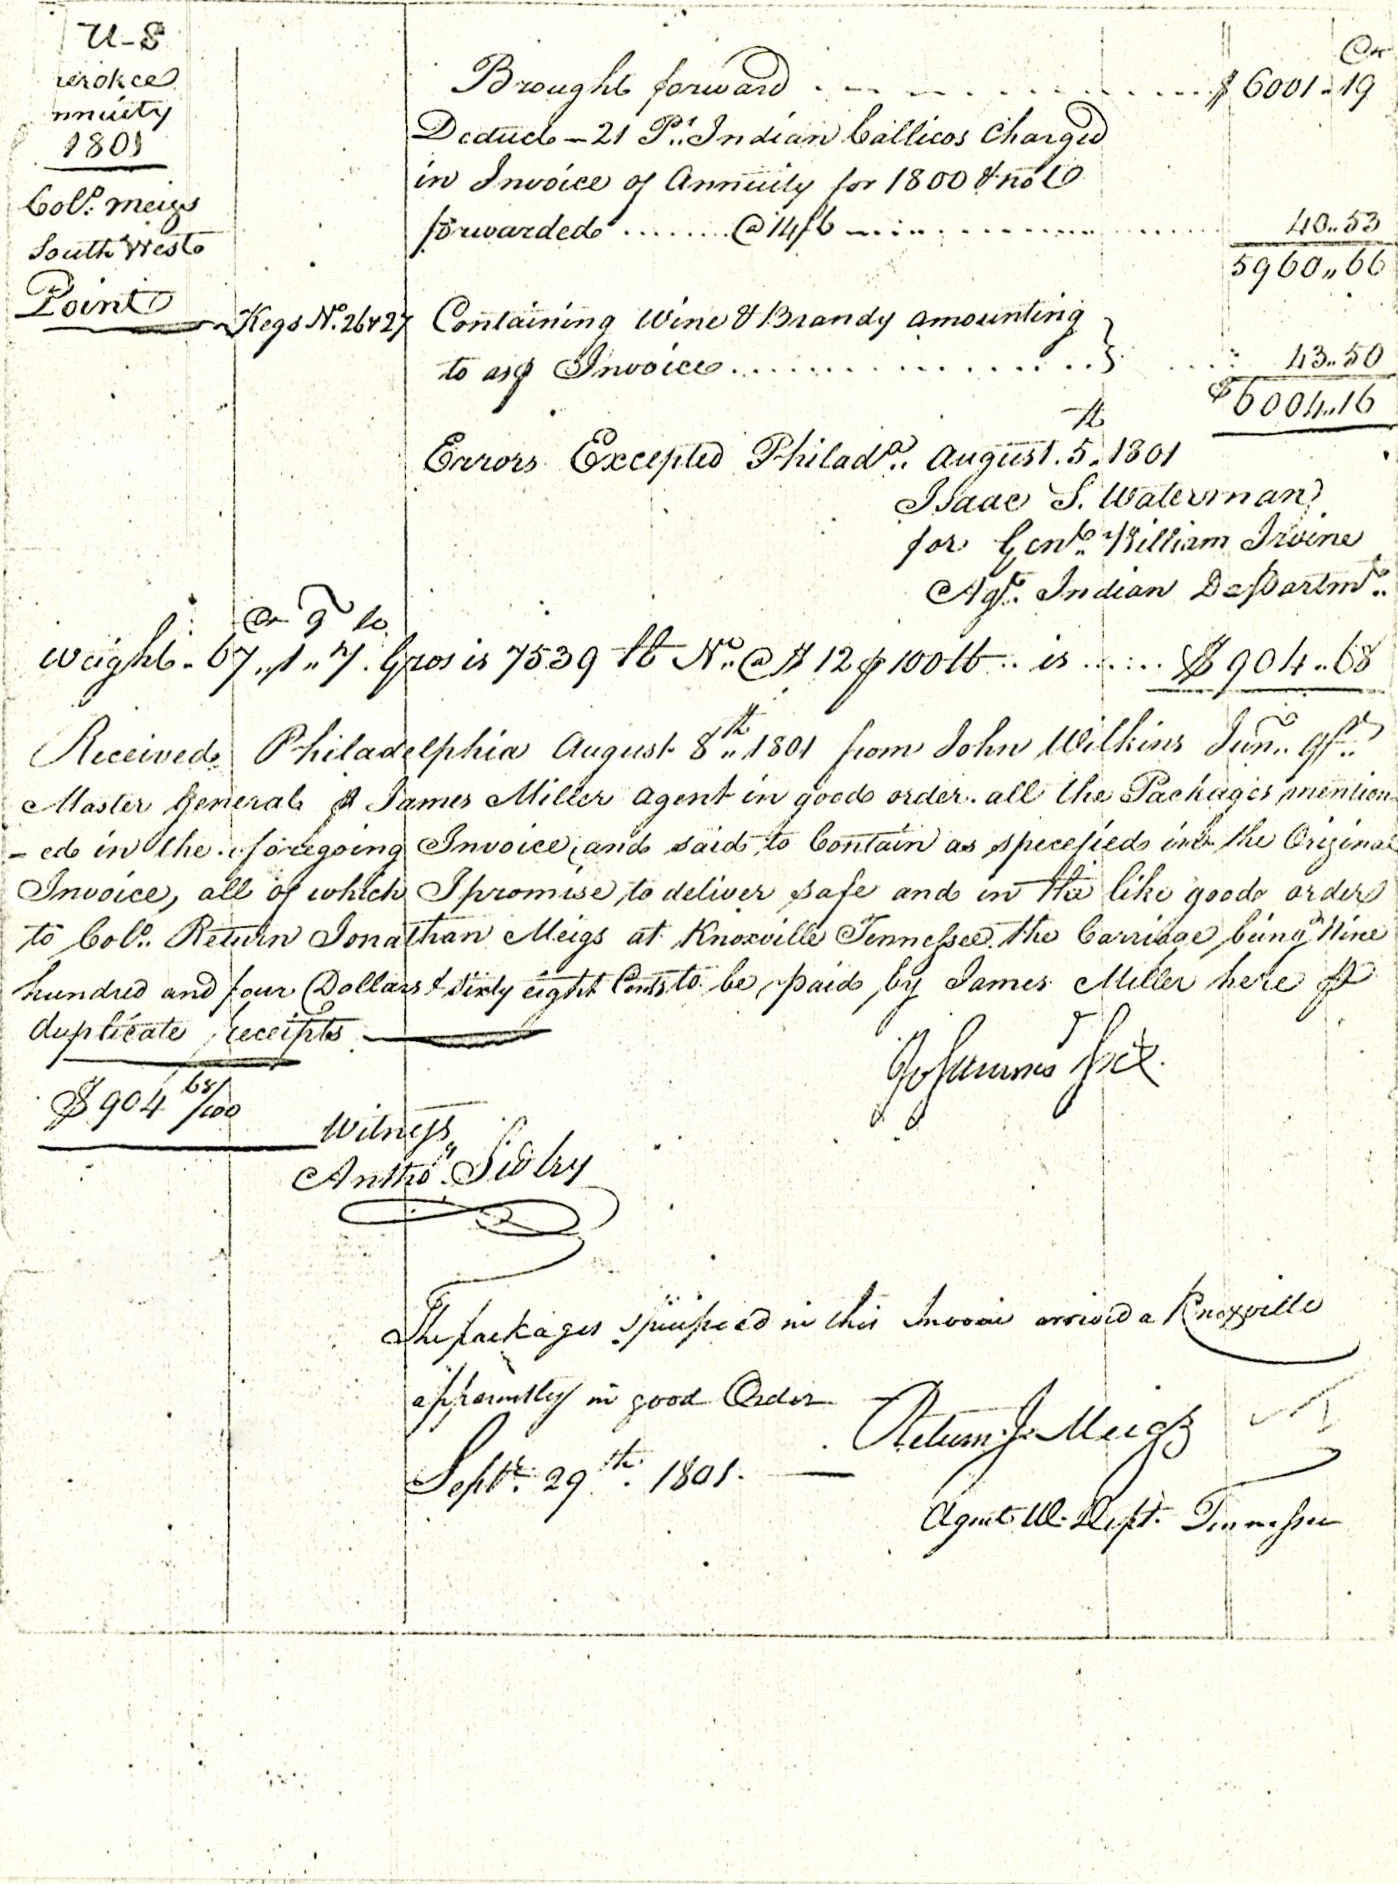 U-S
erokee
nnuity
1801
Colo. Meigs
South West
Point
Cr
Brought forward . . . . . . . . $ 6001 . 19
Deduct - 21 Ps. Indian Callicos Charged
in Invoice of Annuity for 1800 & not
forwarded ....... @ 14/6 ........ 40..53
5960,,66
Kegs No. 26 & 27 Containing Wine & Brandy amounting
to as p Invoice . . . . . . . . . 43..50
$ 6004..16
Errors Excepted Philada.. August. 5th 1801
Isaac S. Waterman
for Genl. William Irvine
Agt. Indian Departmt..
C q lb
Weight - 67,,1,,7. Gros is 7539 lb Nt.. @ $ 12 p 100 lb .. is ...... $ 904..68
Received Philadelphia August 8th.. 1801 from John Wilkins Junr. Qr..
Master General p James Miller agent in good order. all the Packages mention-
- ed in the foregoing Invoice, and said to Contain as specefied in the Original
Invoice, all of which I promise to deliver safe and in the like good order
to Colo.. Return Jonathan Meigs at Knoxville Tennessee. the Carriage being Nine
hundred and four Dollars & sixty eight Cents to be paid by James Miller here p
duplicate receipts
$ 904 68/100
Witness
Anthoy.
The packages in this Invoice arrived a Knoxville
apparently in good Order
Return J. Meigs
Septr. 29th. 1801.
Agent W. Dept. Tennessee